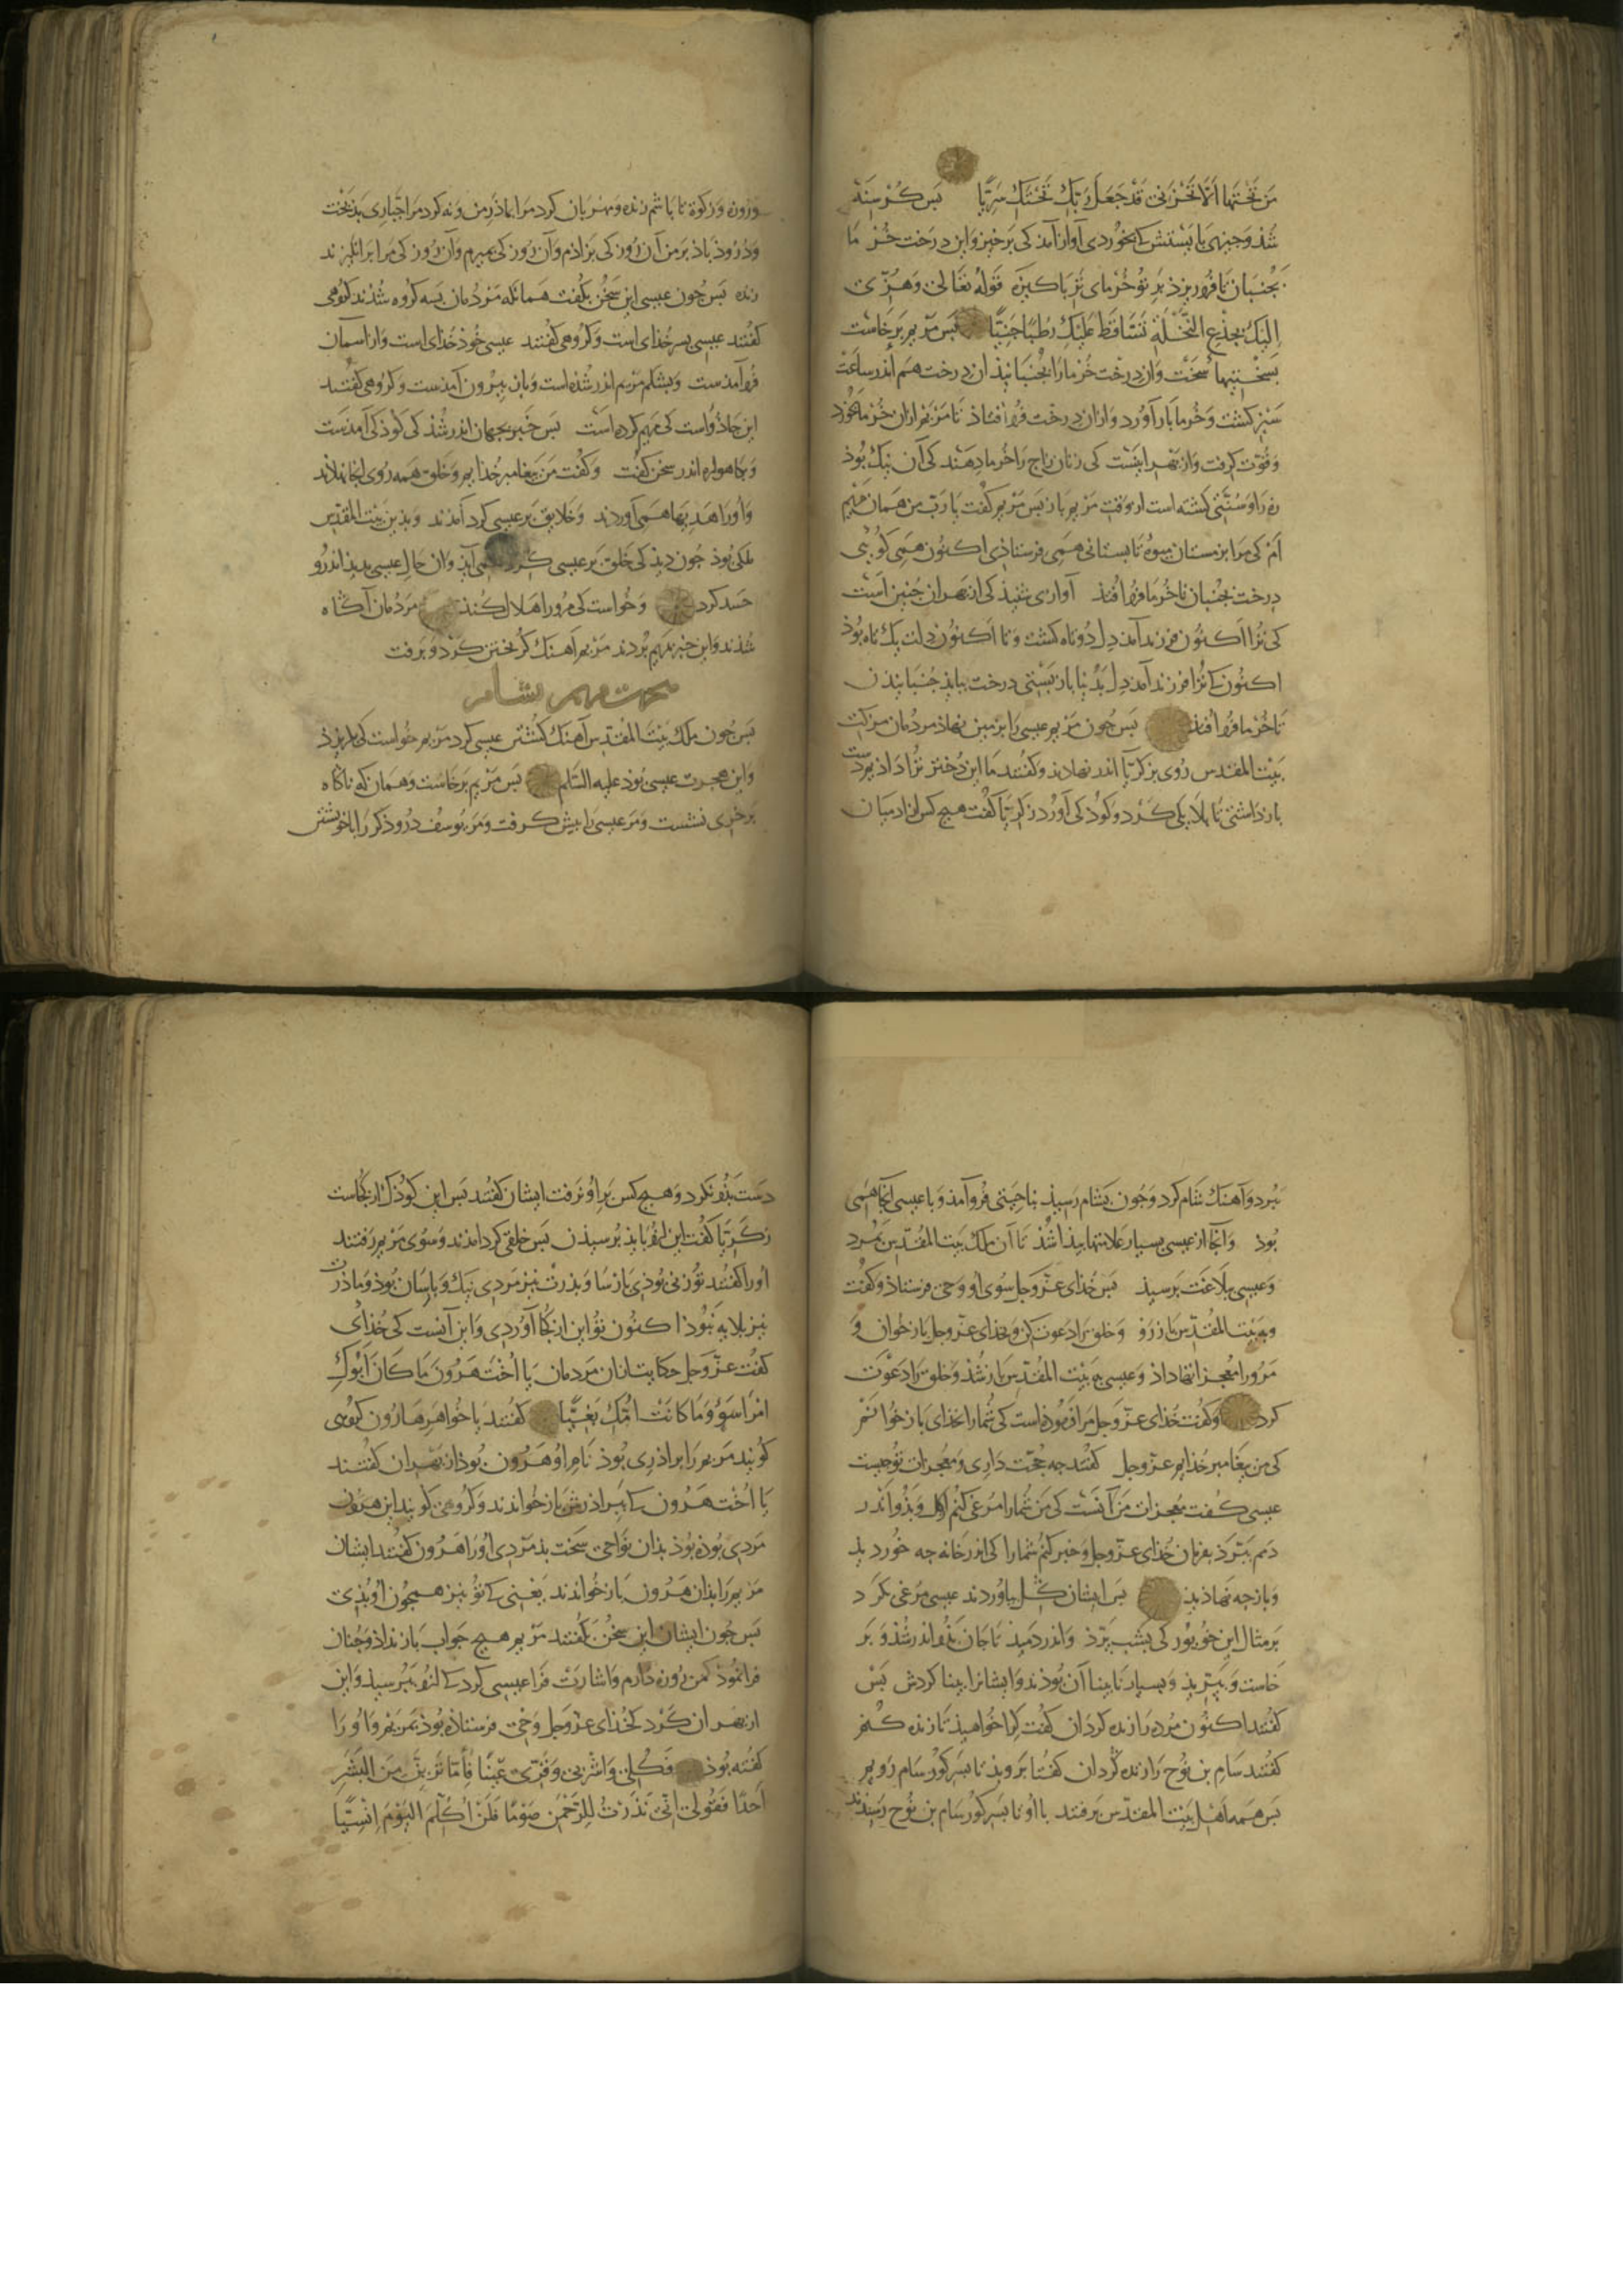 مَن تَحْتَهَا اَلَّا تَحْزَنی قَدْ جَعَلَ رَبُّكِ تَحْتَكِ سَرِیًّا بَس کُرْسِنَه
شُذ وَجیزی بَایَستش کی بخوردی آواز آمذ کی بَرخیز وَاین درخت خُرْ مَا
بجُنبَان تا فُرو ریزذ بَر تو خُرْمای تَر بَاکیزه قَولُه تَعَالی وَهُزّی
اِلَیْكِ بِجِذْعِ النَّخْلَةِ تُسَاقِطْ عَلَیْكِ رُطَبًا جَنِیًّا بَس مَرْیم بَرخَاست
بسَختیها سَخْت وَان درخت خُرما را بجُنبانیذ ان درخت هم اندر ساعت
سَبز کشت وَخُرما بار آوُرد وَازان درخت فُرو افتاذ تا مَریم ازان خُرما بخُورد
وَقُوّت کرفت وَاز بَهر اینَست کی زنان زاج رَا خُرما دهند کی آن نیك بُوذ
زه رَا وسُنّتی کشته است از وَقتِ مَریم باز بَس مَریم کفت یا رَبّ من همان مَریم
اَم کی مَرا بزمستان میوهٔ تابستانی همی فرستاذی اکنون همی کوئی
درخت بجُنبان تا خُرما فُرو افتذ آوازی شنیذ کی از بَهر ان جُنین است
کی ترا اکنون فرزند آمذ دِل دُوتاه کشت وَتا اکنُون دِلت یك تاه بُوذ
اکنُون کی تُرا فرزند آمذ دِل بَدُنیا باز بَستی درخت ببایذ جُنبانیذن
تا خُرما فُرو افتذ بَس جُون مَریم عیسی رَا بزمین نهاذ مردُمان مزکت
بَیت المقدس رُوی بزکریّا اندر نهاذند وکفتند مَا این دُختر تُرا داذیم دست
باز داشتی تا بَلایکی کَرد و کوذکی آوُرد زکریّا کفت هیچ کس از ادمیان
وَروزه وَزکوة تا باشم زنده ومهربان کرد مَرا بماذَرِ من وَنه کرد مَرا جبّاری بَذبَخت
وَدُرُوذ باذ بَر من آن رُوز کی بَزاذم وَآن رُوز کی بمیرم وَآن رُوز کی مَرا بَر انکیزند
زنده بَس جُون عیسی این سَخُن بکفت هَمانکه مَردُمان بَسه کرُوه شُذند کرُوهی
کفتند عیسی پسر خُذای است وَکرُوهی کفتند عیسی خُوذ خُذای است وَاز اسمان
فُرو آمذست وَبشکم مَریم اندر شذه است وَباز بیرُون آمذست وَکرُوهی کفتند
این جاذُوَاست کی مَریم کرده است بَس خَبر بجهان اندر شُذ کی کُوذکی آمذست
وَبکاهواره اندر سخن کفت وَکفت مَن بیغامبر خُذایم وَخلق همه رُوی انجا نهاذند
وَاُورا هَدیها همی آوردند وَخلایق بَر عیسی کرد آمَذند وَبذین بَیت المقدّس
مَلکی بُوذ جُون دیذ کی خَلق بَر عیسی کرد همی آیذ وَان حالِ عیسی بدیذ اندرُو
حَسد کرد وَخُواست کی مُرورا هَلاك کُنذ مَردُمان آکاه
شُذند وَاین خبر بمَریم بُردند مَریم آهنك کُریختن کرد وَبرفت
هجرت مریم بشام
بَس جُون مَلك بَیت المُقدس آهنك کُشتن عیسی کرد مَریم خُواست کی بکریزذ
وَاین هجرت عیسی بُوذ علیه السّلام بَس مَریم بَرخاست وَهمان که ناکاه
بَرخری نشست وَمَر عیسی رَا بیش کرفت وَمَر یُوسف دُرُوذکر را با خویشتن
ببُرد وَآهنك شام کرد وَجُون بَشام رسیذ بناحیتی فُرو آمذ وَبا عیسی آنجا همی
بُوذ وَآنجا از عیسی بسیار علامتها بیذا شُذ تا آن مَلك بَیت المُقدّس بمُرد
وَعیسی بَبلاغَت بَرسیذ بَس خُذای عزّ وَجلّ سُوی اُو وَحی فرستاذ وَکفت
وببَیت المقدّس باز رَو وَخلق رَا دعوت کن وبخذای عزّ وجلّ باز خُوان وَ
مَرورا مُعجزاتها داذ وَعیسی ببَیت المُقدّس باز شُذ وَخلق رَا دَعْوَت
کرد وَکفت خُذای عزّ وَجل مَرا فرمُوذه است کی شُمارا بخذای باز خُوانم
کی من بیغامبر خُذایم عزّ وجلّ کفتند جه حُجّت دَاری وَمُعجزات تُو جیست
عیسی کفت مُعجزات مَن آنست کی مَن شُمارا مُرغی کنم از کل وَبذُو اندر
دَمم ببرّذ بفرمان خُذای عزّ وجلّ وَخبر کنم شمارا کی اندر خانه جه خُورد یذ
وَباز جه نهاذیذ بَس ایشان کِل بیاوُردند عیسی مرغی بکرد
بَر مثال این خُوبُور کی بشب پَرّذ وَاندر دَمیذ تا جان بذُو اندر شُذ وَ بَر
خاست وَببَریذ وَبسیار نابینا آن بُوذند وَایشانرا بینا کردش بَس
کفتند اکنُون مُرده را زنده کردان کفت کرا خُواهیذ تا زنده کُنم
کفتند سَام بن نوُح رَا زنده کردان کفتا بَرویذ تا بسَر کور سَام رَویم
بَس همه اَهْل بَیت المقدّس برفتند با اُو تا بسَر کور سَام بن نُوح رَسیذند
دَست بَذُو نکرد وَهیچ کس بَر اُو نرفت ایشان کفتند بَس این کوُذَك از کجاست
زکَریّا کفت این از وُبایذ بُرسیذن بَس خلقی کرد امذند وَسُوی مَریم رَفتند
اورا کفتند تُو زنی بُوذی پارسَا وَبذرتْ نیز مَردی نیك وَپارسا بُوذ وَماذرت
نیز بلایه نَبُوذ اکنُون تُو این از کجا آوُردی وَاین آنست کی خُذای
کفت عزّ وَجل حکایت از ان مَردمان یَا اُخْتَ هَرُونَ مَا کَانَ اَبُوكِ
امْرَاَ سَوْءٍ وَمَا کَانَتْ اُمُّكِ بَغِیًّا کفتند یا خُواهَرِ هَارُون کرُوهی
کُویند مَریم رَا براذری بُوذ نامِ اُو هَرُون بُوذ از بَهر ان کفتند
یَا اُخْتَ هَرُون کی ببراذرش باز خُواندند وَکرُوهی کُویند این هرُون
مَردی بُوذه بُوذ بذان نَواحی سَخت بذ مَردی اُورا هَرُون کفتند ایشان
مَریم رَا بذان هَرُون باز خُواندند یَعْنی کی تُو نیز همجُون اُو بُذی
بَس جُون ایشان این سخُن بکفتند مَریم هیچ جَواب باز نداذ وَجُنان
فرا نمُوذ کمن رُوزه دارم وَاشارت فَرا عیسی کرد کی از وُ ببُرسیذ وَاین
از بَهر ان کرد کخُذای عزّ وَجل وَحی فرستاذه بُوذ بمَریم وَاُو رَا
کفته بُوذ فَکُلِی وَاشْرَبِی وَقَرِّی عَیْنًا فَاِمَّا تَرَیِنَّ مِنَ الْبَشَرِ
اَحَدًا فَقُولِی اِنِّی نَذَرْتُ لِلرَّحْمٰنِ صَوْمًا فَلَنْ اُکَلِّمَ الْیَوْمَ اِنْسِیًّا